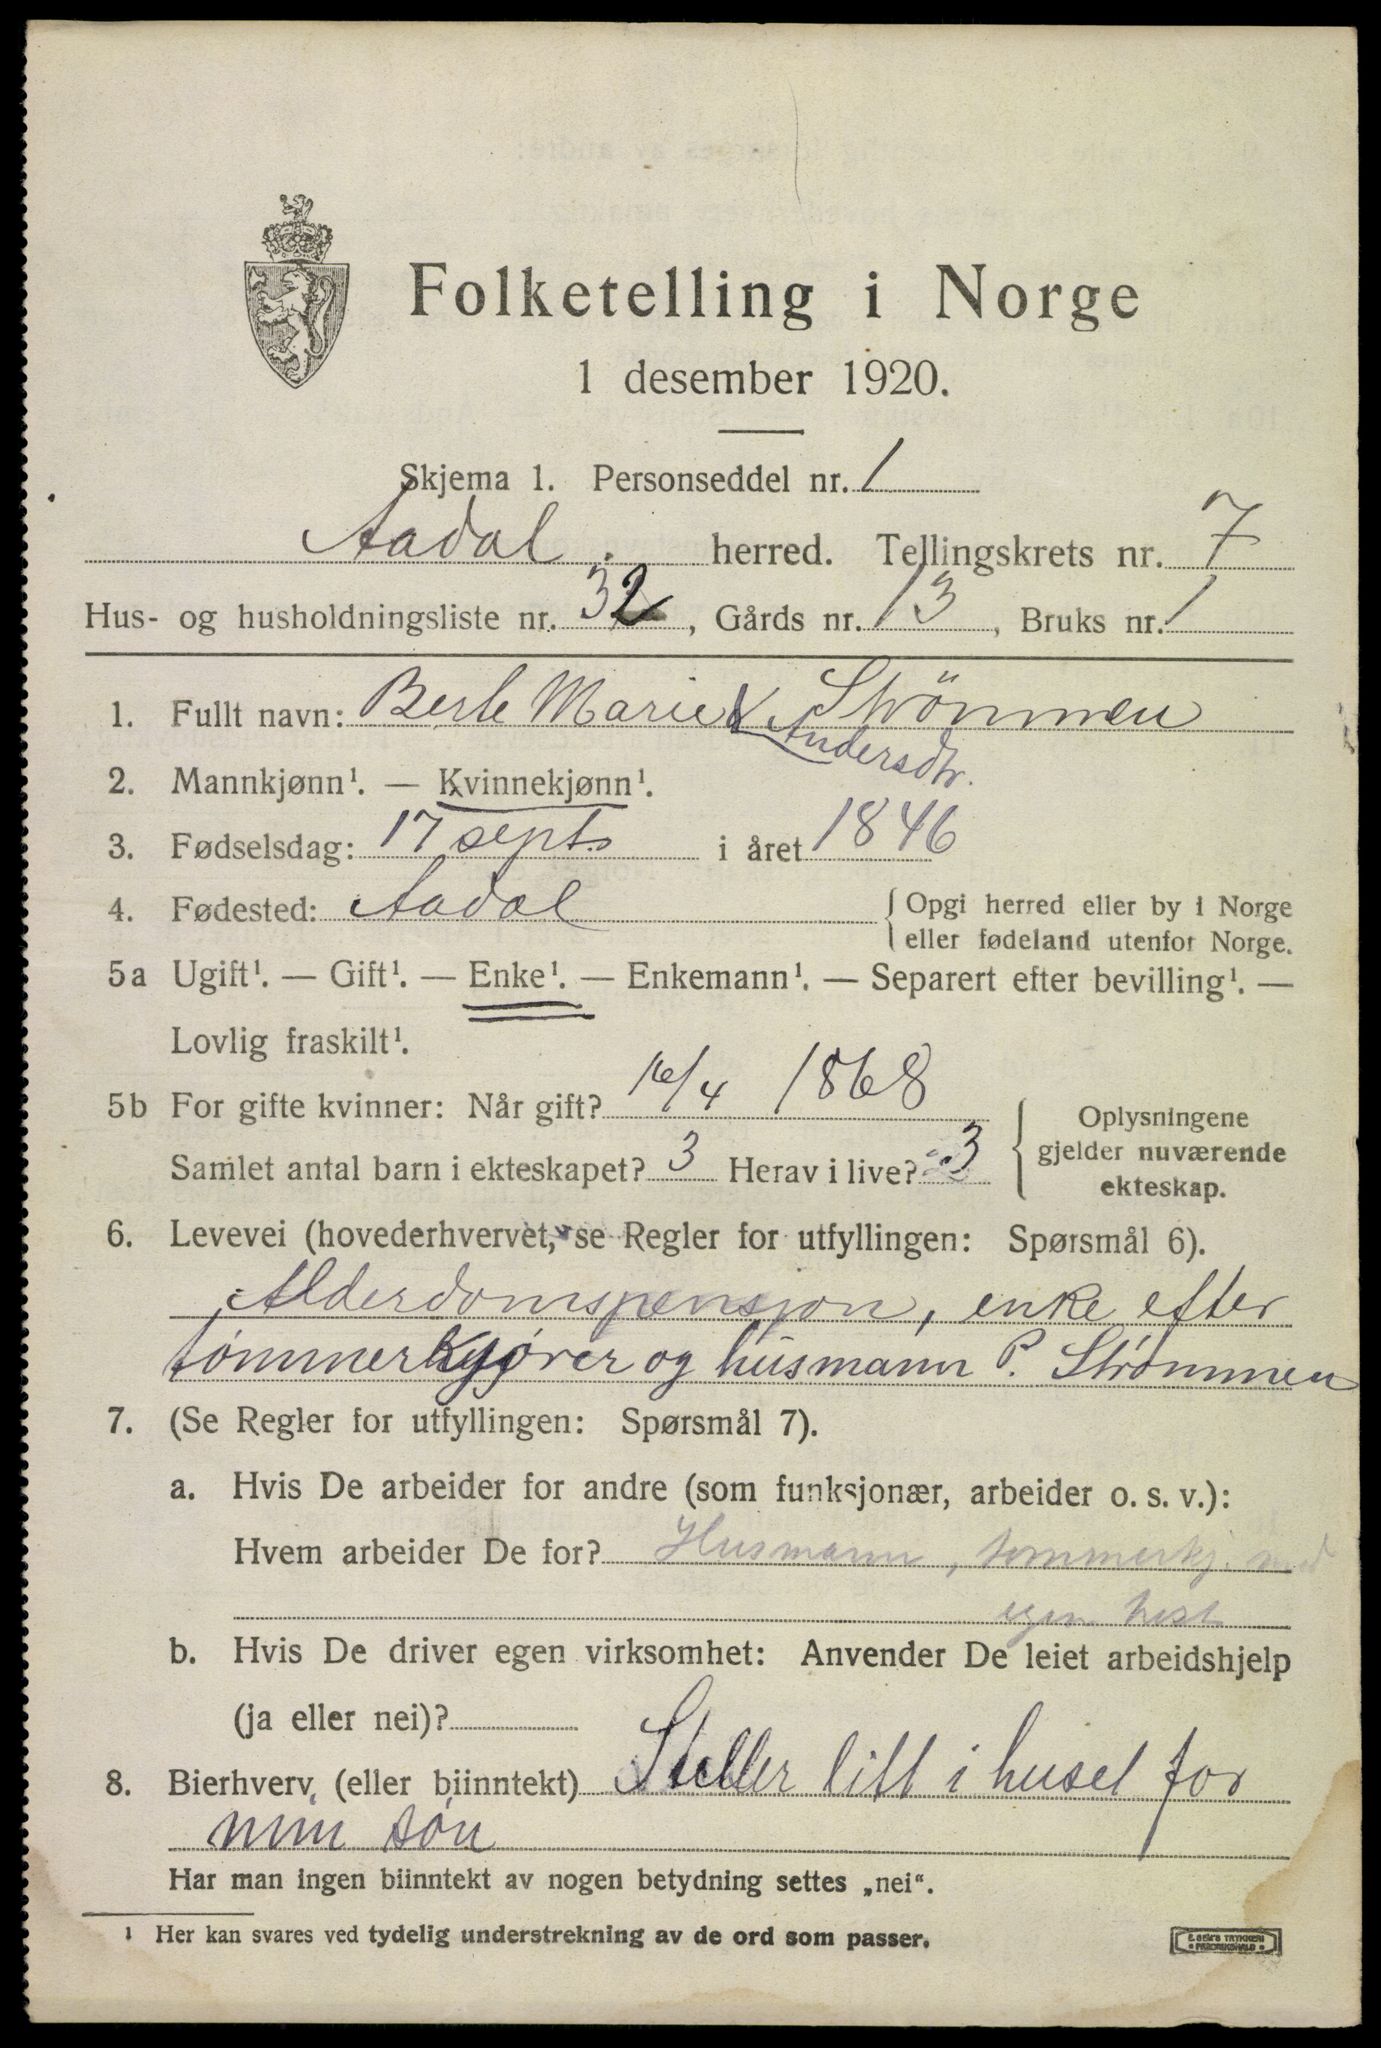 Folketelling i Norge
1 desember 1920.
Skjema 1. Personseddel nr. 1
Aadal herred. Tellingskrets nr. 7
Hus- og husholdningsliste nr. 32, Gårds nr. 13, Bruks nr. 1
1. Fullt navn: Berte Marie Strömmen
Andersdtr.
2. Mannkjønn¹. — Kvinnekjønn¹.
3. Fødselsdag: 17 sept. i året 1846
4. Fødested: Aadal { Opgi herred eller by i Norge
eller fødeland utenfor Norge.
5a Ugift¹. — Gift¹. — Enke¹. — Enkemann¹. — Separert efter bevilling¹. —
Lovlig fraskilt¹.
5b For gifte kvinner: Når gift? 16/4 1868
Samlet antal barn i ekteskapet? 3 Herav i live? 3
Oplysningene
gjelder nuværende
ekteskap.
6. Levevei (hovederhvervet, se Regler for utfyllingen: Spørsmål 6).
Alderdomspensjon, enke efter
tømmerkjører og husmann P. Strømmen
7. (Se Regler for utfyllingen: Spørsmål 7).
a. Hvis De arbeider for andre (som funksjonær, arbeider o. s. v.):
Hvem arbeider De for? Husmann, tømmerkj. med
egen hest
b. Hvis De driver egen virksomhet: Anvender De leiet arbeidshjelp
(ja eller nei)?
8. Bierhverv (eller biinntekt) Steller litt i huset for
min sön
Har man ingen biinntekt av nogen betydning settes „nei“.
¹ Her kan svares ved tydelig understrekning av de ord som passer.
E. SEM'S TRYKKERI
FREDRIKSHALD